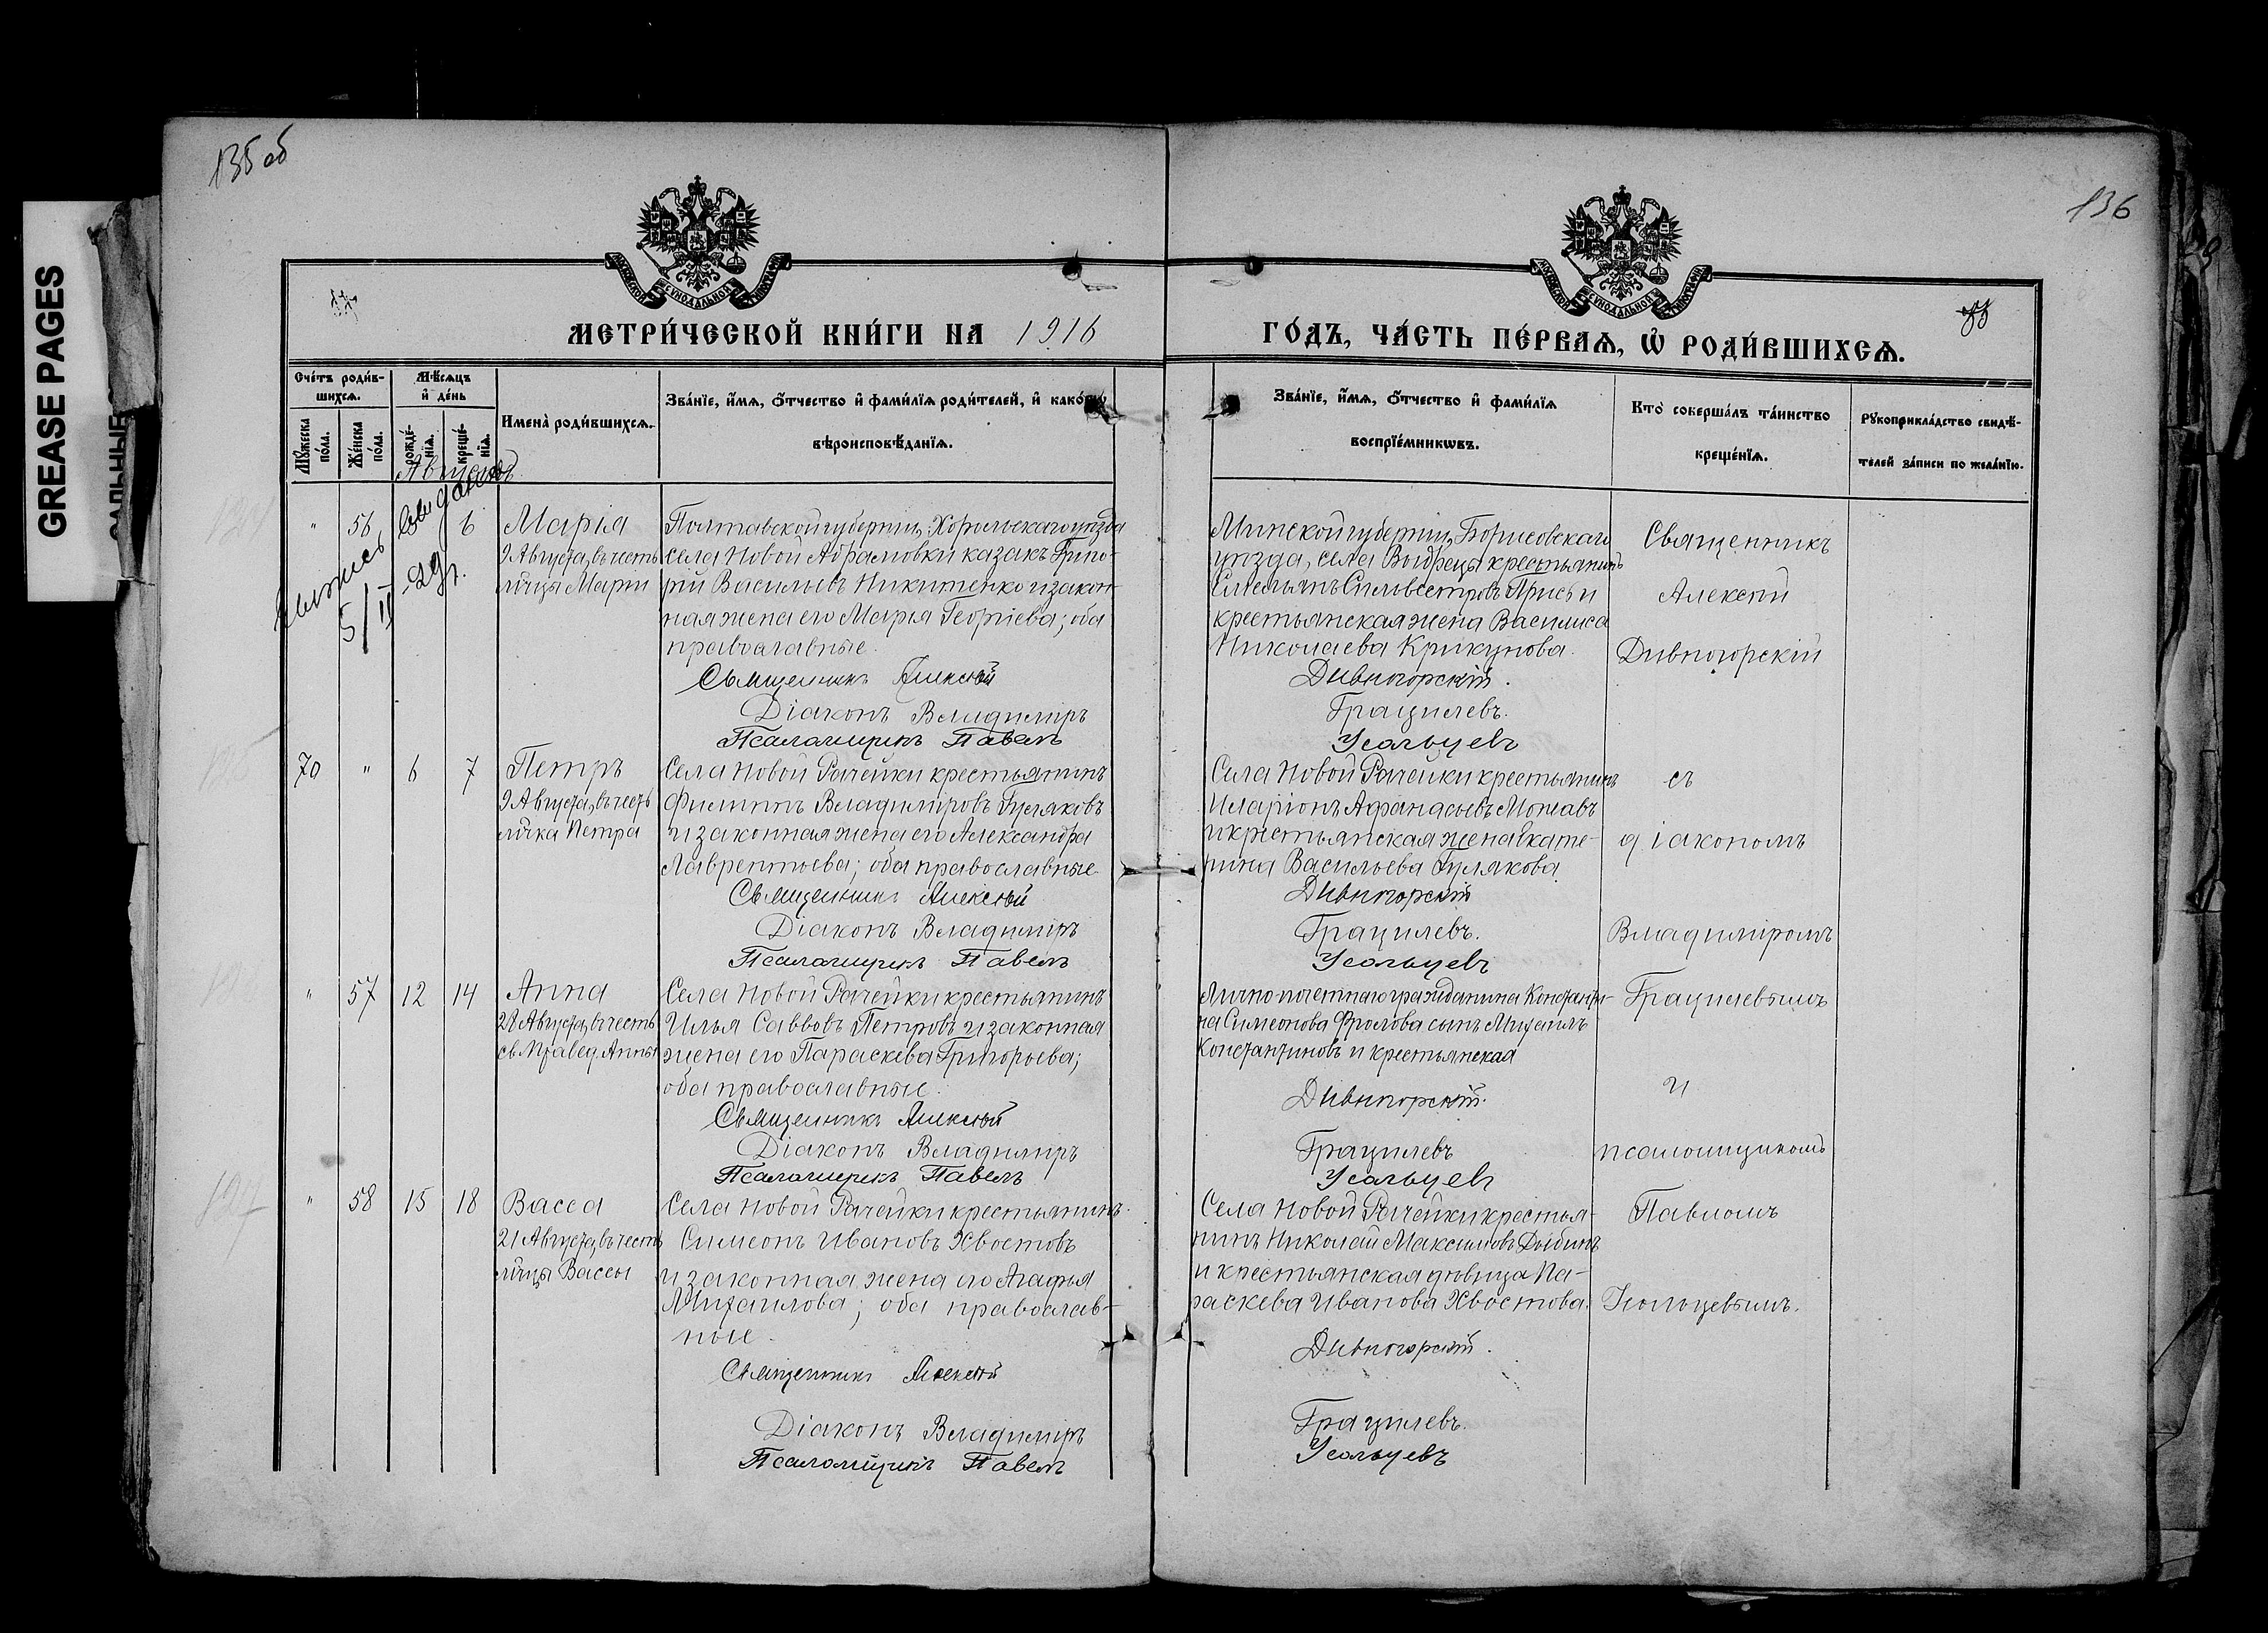 135 об
136
GREASE PAGES
МЕТРИ́ЧЕСКОЙ КНИ́ГИ НА 1916
ГО́ДЪ, ЧА́СТЬ ПЕ́РВАѦ, Ѡ҆ РОДИ́ВШИХСѦ.
Сче́тъ роди́в-
шихсѧ.
Мꙋ́жеска по́ла.
Же́нска по́ла.
Мѣ́сѧцъ
и҆ де́нь
рожде́-
нїѧ.
креще́-
нїѧ.
Имена̀ роди́вшихсѧ.
Зва́нїе, и҆́мѧ, ѻ҆́тчество и҆ фами́лїѧ роди́телей, и҆ како́гѡ
вѣроисповѣ́данїѧ.
Зва́нїе, и҆́мѧ, ѻ҆́тчество и҆ фами́лїѧ
воспрїе́мникѡвъ.
Кто̀ соверша́лъ та́инство
креще́нїѧ.
Рꙋкоприкла́дство свидѣ́-
телей за́писи по жела́нїю.
Августъ
" 56 6 Марія
9 Августа, въ честь
м҃ницы Маріи
Полтавской губерніи, Хорольскаго уѣзда
села Новой Аврамовки казакъ Григо-
рій Васильевъ Никитенко и закон-
ная жена его Марія Георгіева; оба
православные.
Священникъ Алексѣй
Діаконъ Владиміръ
Псаломщикъ Павелъ
Минской губерніи, Борисовскаго
уѣзда, села крестьянинъ
Емельянъ Сильвестровъ и
крестьянская жена Василиса
Николаева Крикунова.
Дивногорскій.
Грацилевъ.
Усольцевъ
Священникъ
Алексѣй
Дивногорскій
70 " 6 7 Петръ
9 Августа, въ честь
м҃ника Петра
Села Новой Рачейки крестьянинъ
Филиппъ Владиміровъ Гуляковъ
и законная жена его Александра
Лаврентьева; оба православные.
Священникъ Алексѣй
Діаконъ Владиміръ
Псаломщикъ Павелъ
Села Новой Рачейки крестьянинъ
Иларіонъ Афанасьевъ
и крестьянская жена Екате-
рина Васильева Гулякова.
Дивногорскій
Грацилевъ.
Усольцевъ
съ
діакономъ
Владиміромъ
" 57 12 14 Анна
28 Августа, въ честь
св. Правед. Анны
Села Новой Рачейки крестьянинъ
Илья Саввовъ Петровъ и законная
жена его Параскева Григорьева;
оба православные.
Священникъ Алексѣй
Діаконъ Владиміръ
Псаломщикъ Павелъ
Лично почетнаго гражданина Константи-
на Симеонова Фролова сынъ Михаилъ
Константиновъ и крестьянская
Дивногорскій.
Грацилевъ
Усольцевъ
Грацилевымъ
и
псаломщикомъ
127
" 58 15 18 Васса
21 Августа, въ честь
м҃ницы Вассы
Села Новой Рачейки крестьянинъ
Симеонъ Ивановъ Хвостовъ
и законная жена его Агафья
Михаилова; оба православ-
ные.
Священникъ Алексѣй
Діаконъ Владиміръ
Псаломщикъ Павелъ
Села Новой Рачейки крестья-
нинъ Николай Максимовъ Дыбинъ
и крестьянская дѣвица Па-
раскева Иванова Хвостова.
Дивногорскій.
Грацилевъ.
Усольцевъ
Павломъ
Усольцевымъ.